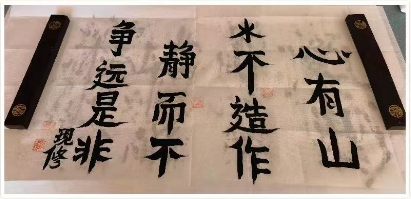 心有山
水不造作
静而不
争远是非
现修